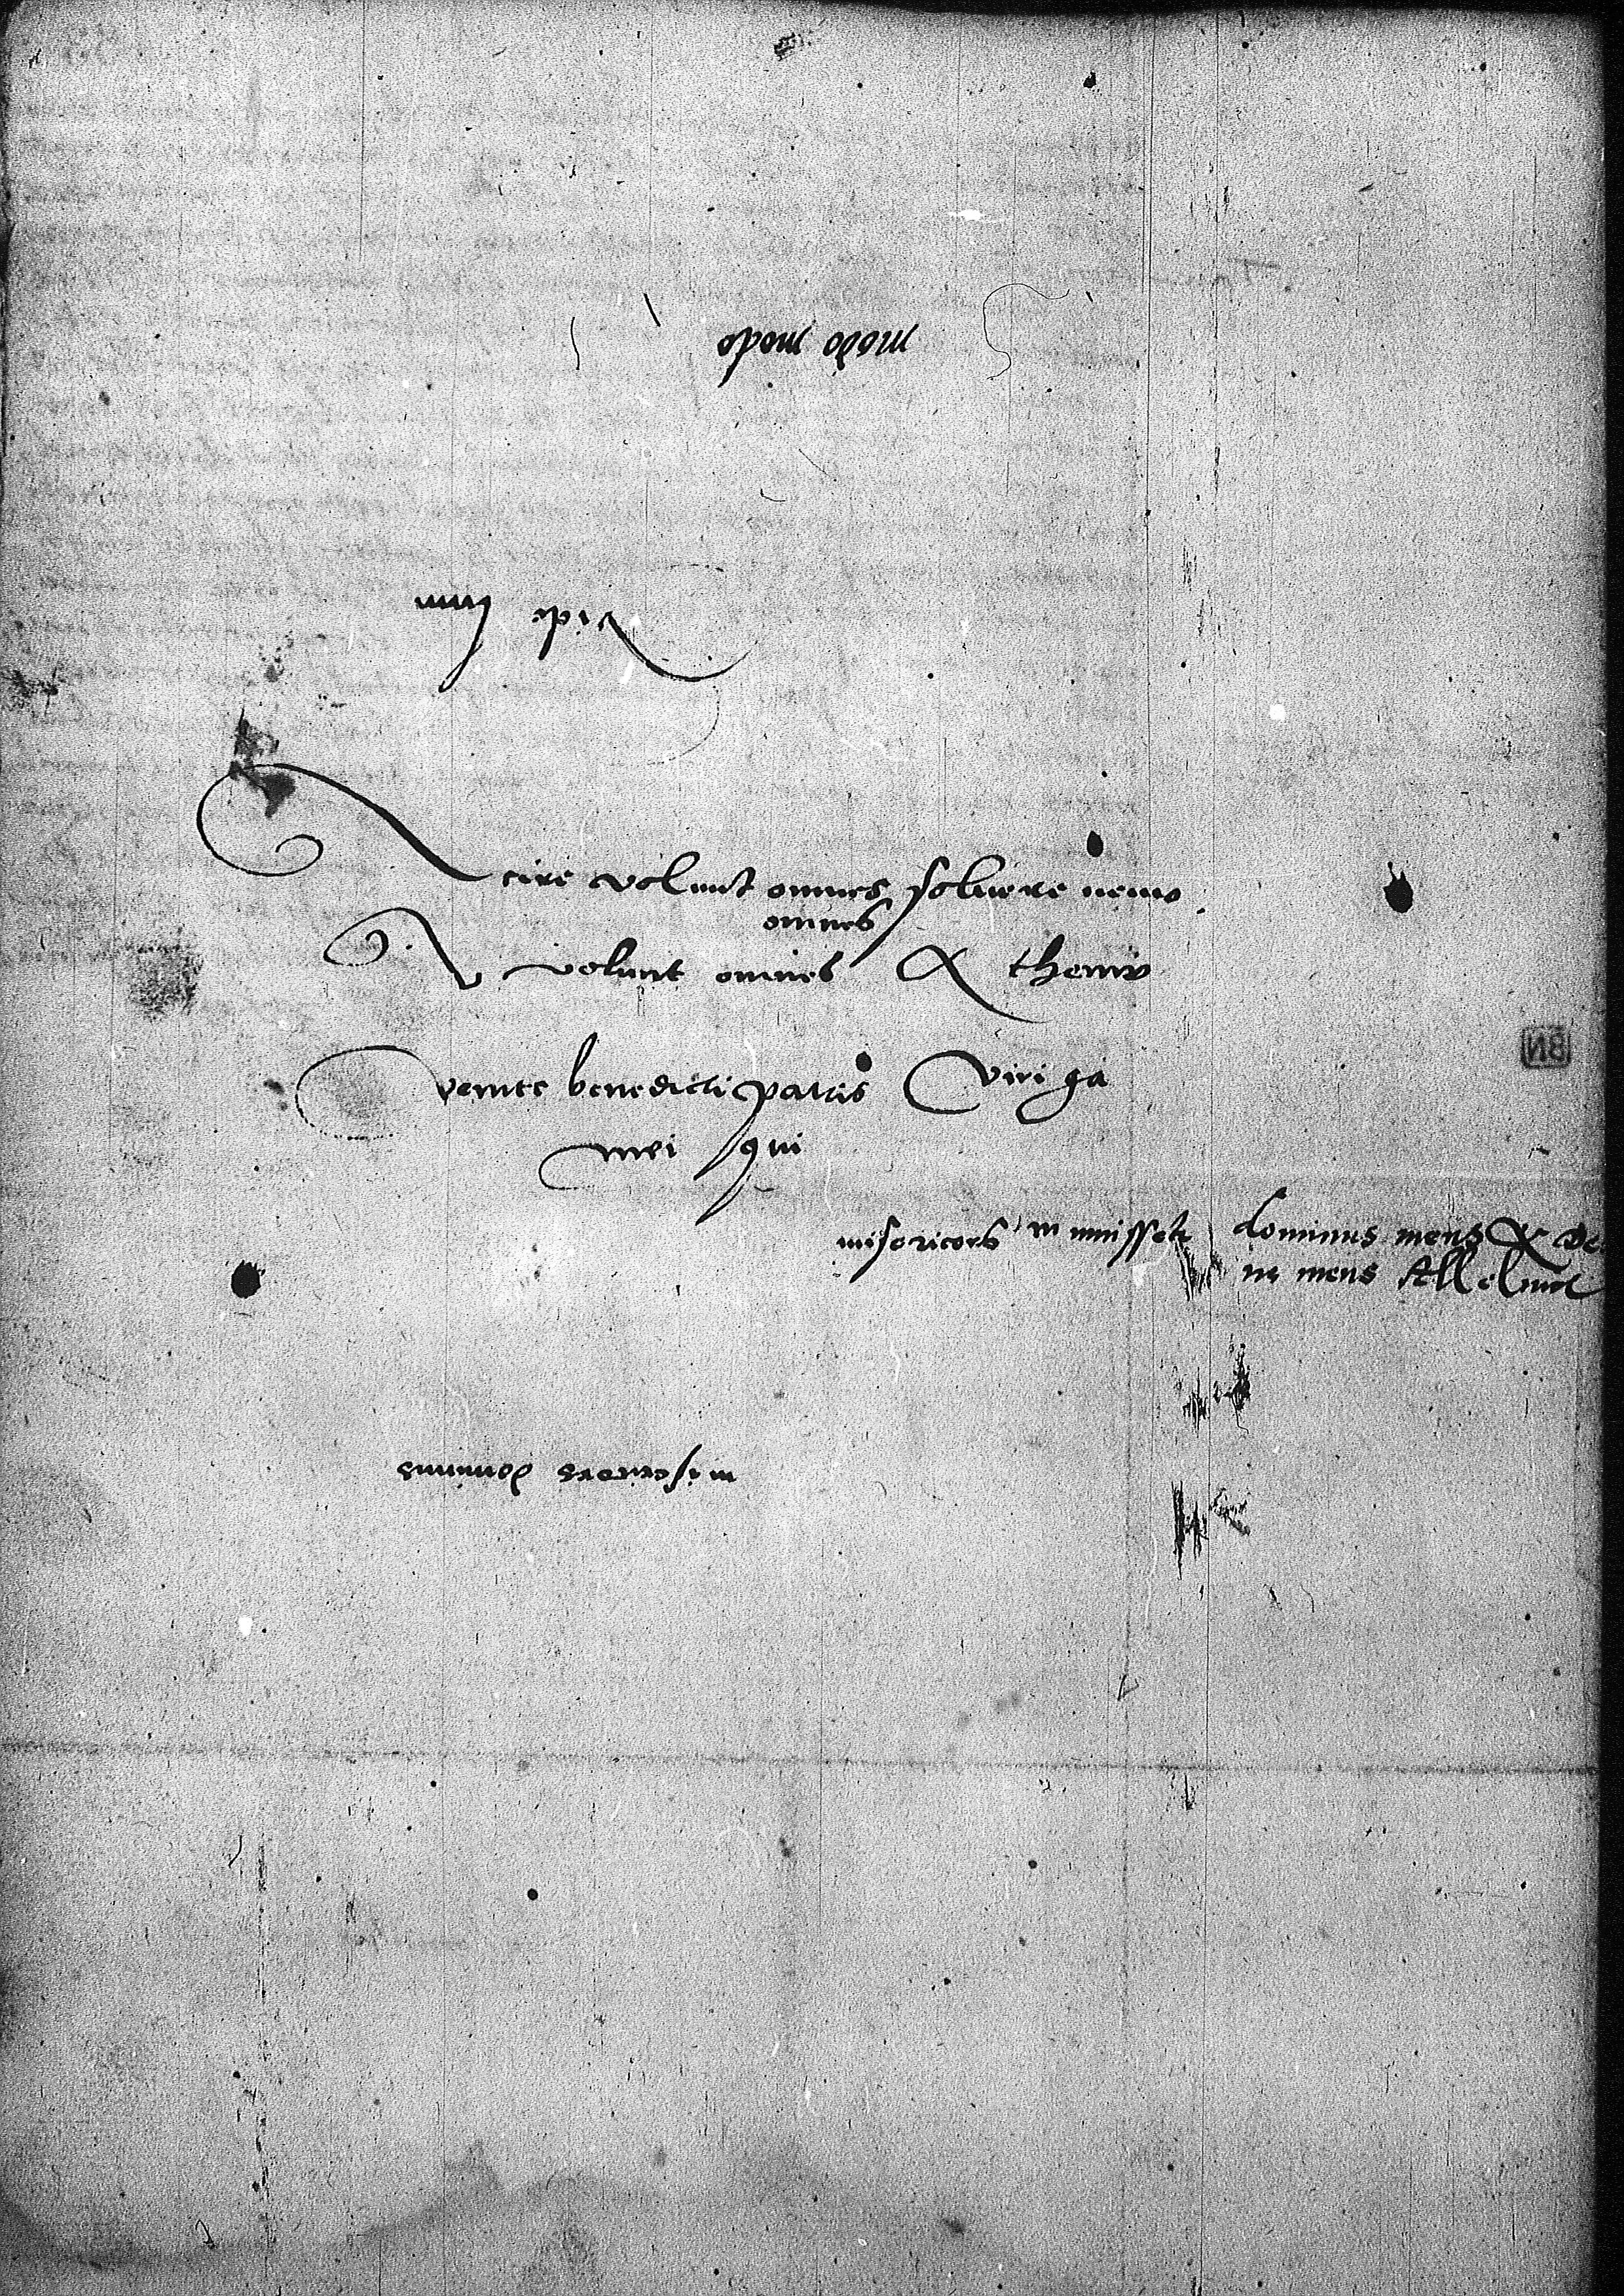 modo modo
vidi
Scire volunt omnes soluere nemo
omnes
volunt omnes & 
venite benedicti patris Viri ga
mei qui
misericors dominus meus & de
us meus Allelu
misericors dominus